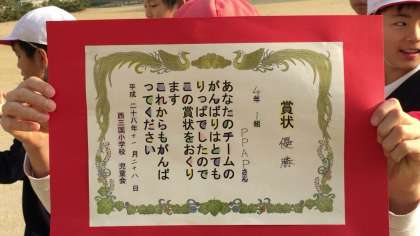 賞状 優勝
4年1組
PPAPさん
あなたのチームの
がんばりはとても
りっぱでしたので
この賞状をおくり
ます
これからもがんば
ってください
平成二十八年十一月二十八日
西三国小学校 児童会